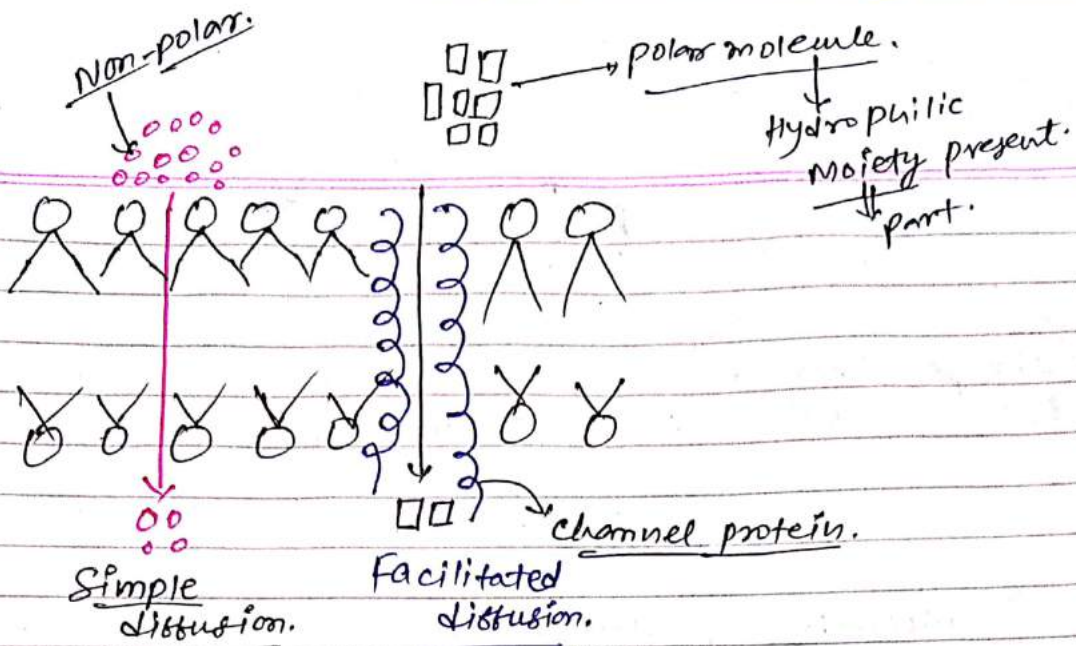 Non-polar.
polar molecule.
Hydrophilic
moiety present.
part.
channel protein.
Simple
diffusion.
Facilitated
diffusion.